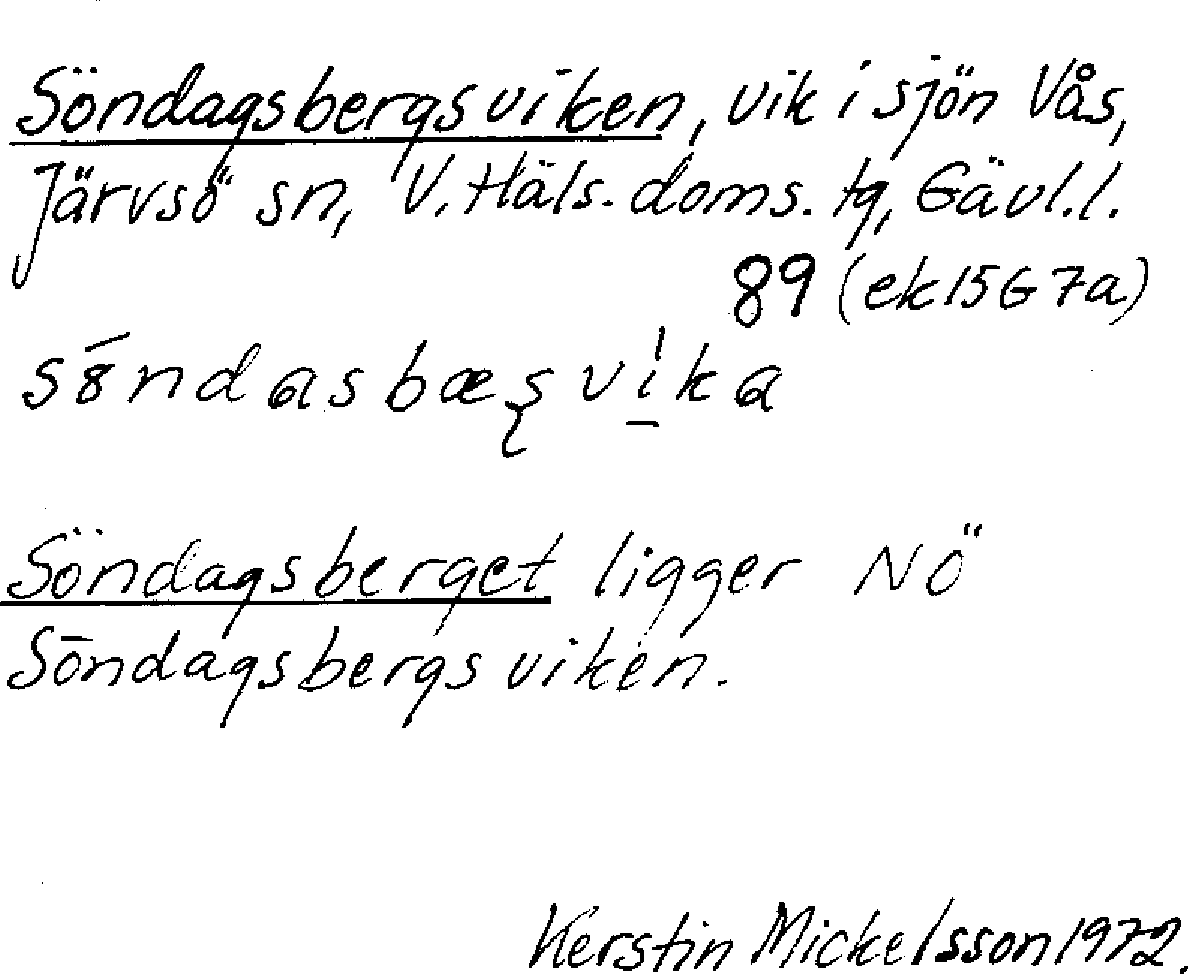 Söndagsbergsviken, vik i sjön Vås,
Järvsö sn, V. Häls. doms. tg, Gävl.l.
89 (ek 15G 7a)
Söndagsberget ligger NÖ
Söndagsbergsviken.
Kerstin Mickelsson 1972.